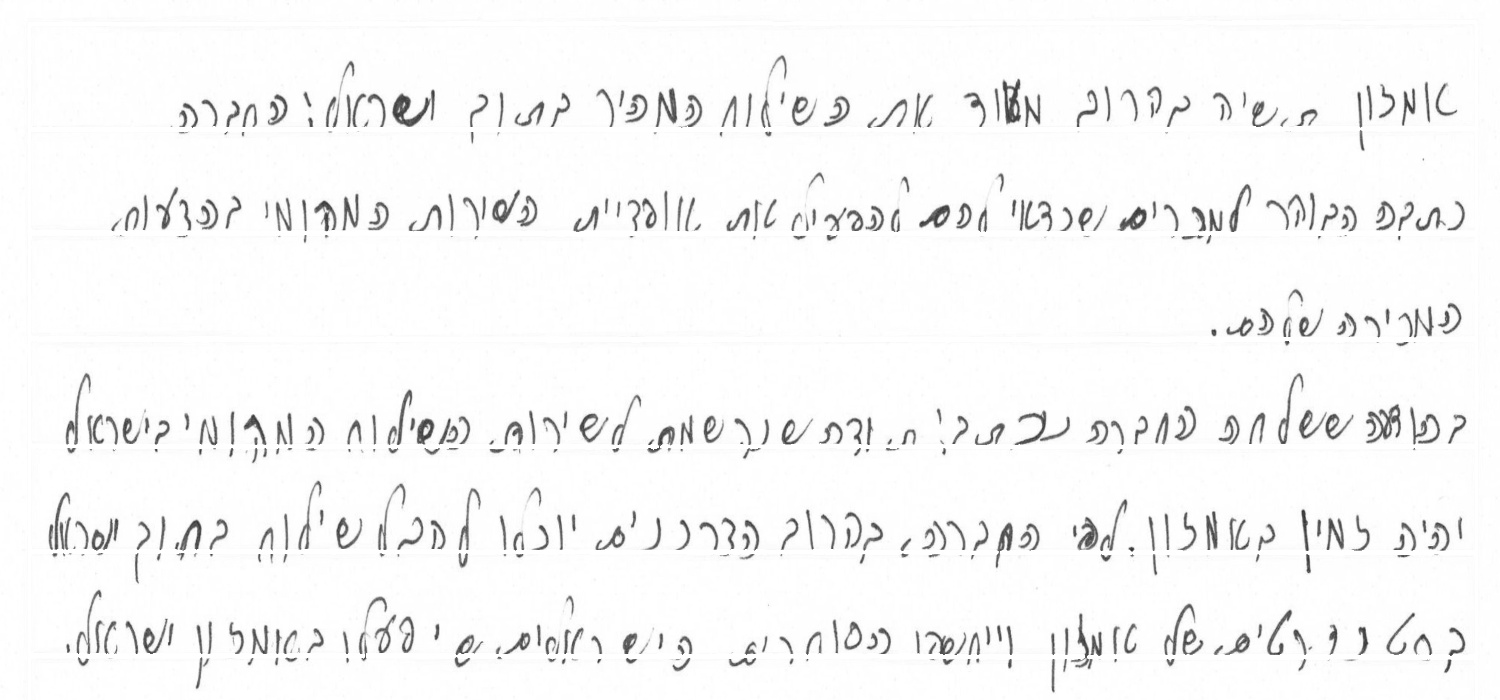 אמזון תשיק בקרוב מאוד את השילוח המהיר בתוך ישראל; החברה
כתבה הבוקר למוכרים שכדאי להם להפעיל את אופציית השירות המקומי בהצעות
המכירה שלהם.
בהודעה ששלחה החברה נכתב: תודה שנרשמת לשירות השילוח המקומי בישראל
יהיה זמין באמזון. לפי החברה, בקרוב הצרכנים יוכלו לקבל שילוח בתוך ישראל
בסטנדרטים של אמזון וייחשפו הסוחרים הישראלים ש יפעלו באמזון ישראל.